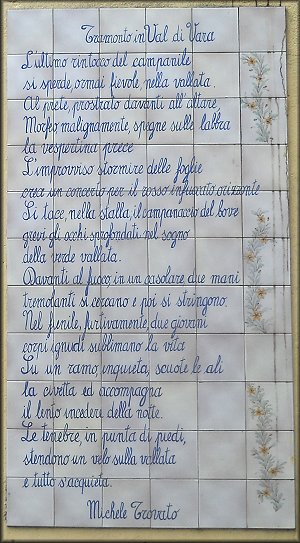 Tramonto in Val di Vara
L'ultimo rintocco del campanile
si sperde, ormai fievole, nella vallata.
Al prete, prostrato davanti all'altare,
Morfeo, malignamente, spegne sulle labbra
la vespertina prece
L'improvviso stormire delle foglie
crea un concerto per il rosso infuocato orizzonte
Si tace, nella stalla, il campanaccio del bove
grevi gli occhi sprofondati nel sogno
della verde vallata.
Davanti al fuoco, in un casolare, due mani
tremolanti si cercano e poi si stringono.
Nel fienile, furtivamente, due giovani
corpi ignudi sublimano la vita
Su un ramo, inquieta, scuote le ali
la civetta ed accompagna
il lento incedere della notte.
Le tenebre, in punta di piedi,
stendono un velo sulla vallata
e tutto s'acquieta.
Michele Trovato